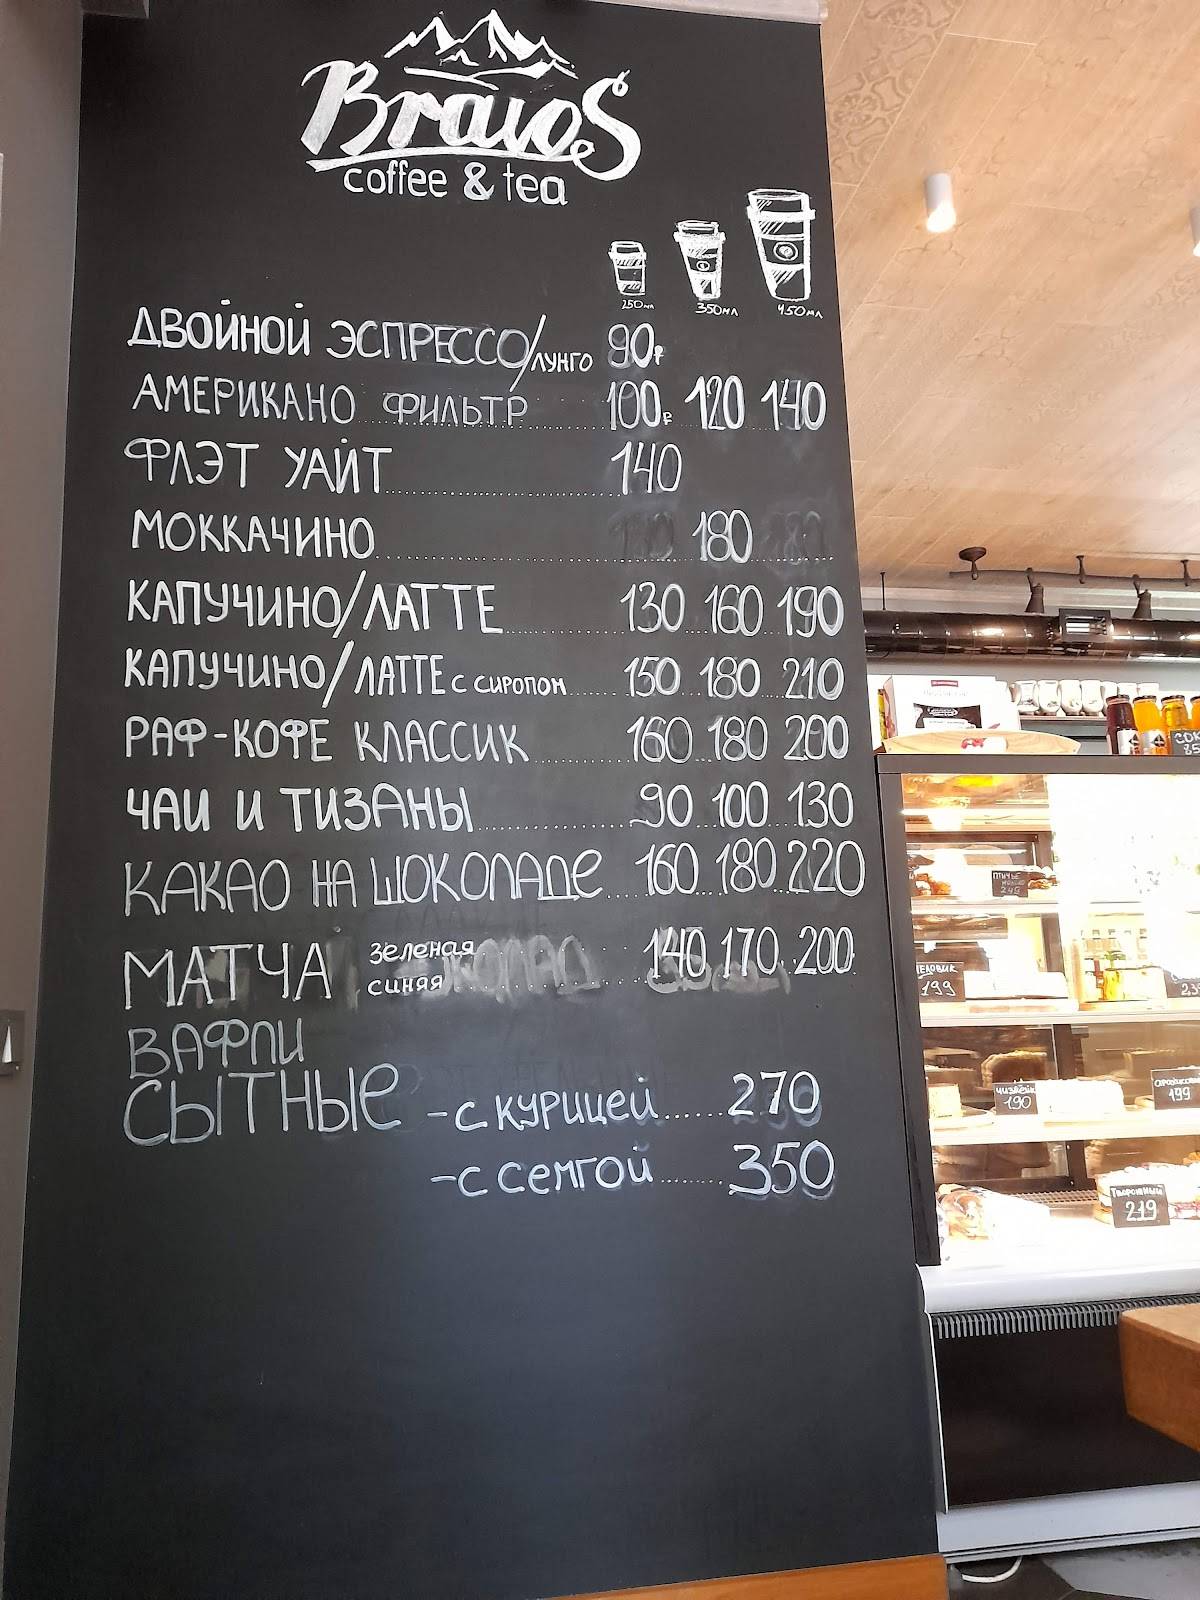 Bravos
coffee & tea
250мл 350мл 450мл
ДВОЙНОЙ ЭСПРЕССО/ЛУНГО 90₽
АМЕРИКАНО ФИЛЬТР 100₽ 120 140
ФЛЭТ УАЙТ 140
МОККАЧИНО 180
КАПУЧИНО/ЛАТТЕ 130 160 190
КАПУЧИНО/ЛАТТЕ С СИРОПОМ 150 180 210
РАФ-КОФЕ КЛАССИК 160 180 200
ЧАИ И ТИЗАНЫ 90 100 130
КАКАО НА ШОКОЛАДЕ 160 180 220
МАТЧА зеленая 140 170 200
синяя
ВАФЛИ
СЫТНЫЕ - С КУРИЦЕЙ 270
- С СЕМГОЙ 350
СОК
85
ПТИЧЬЕ
МОЛОКО
249
МЕДОВИК
199
239
ЧИЗКЕЙК
190
199
ТВОРОЖНЫЙ
219